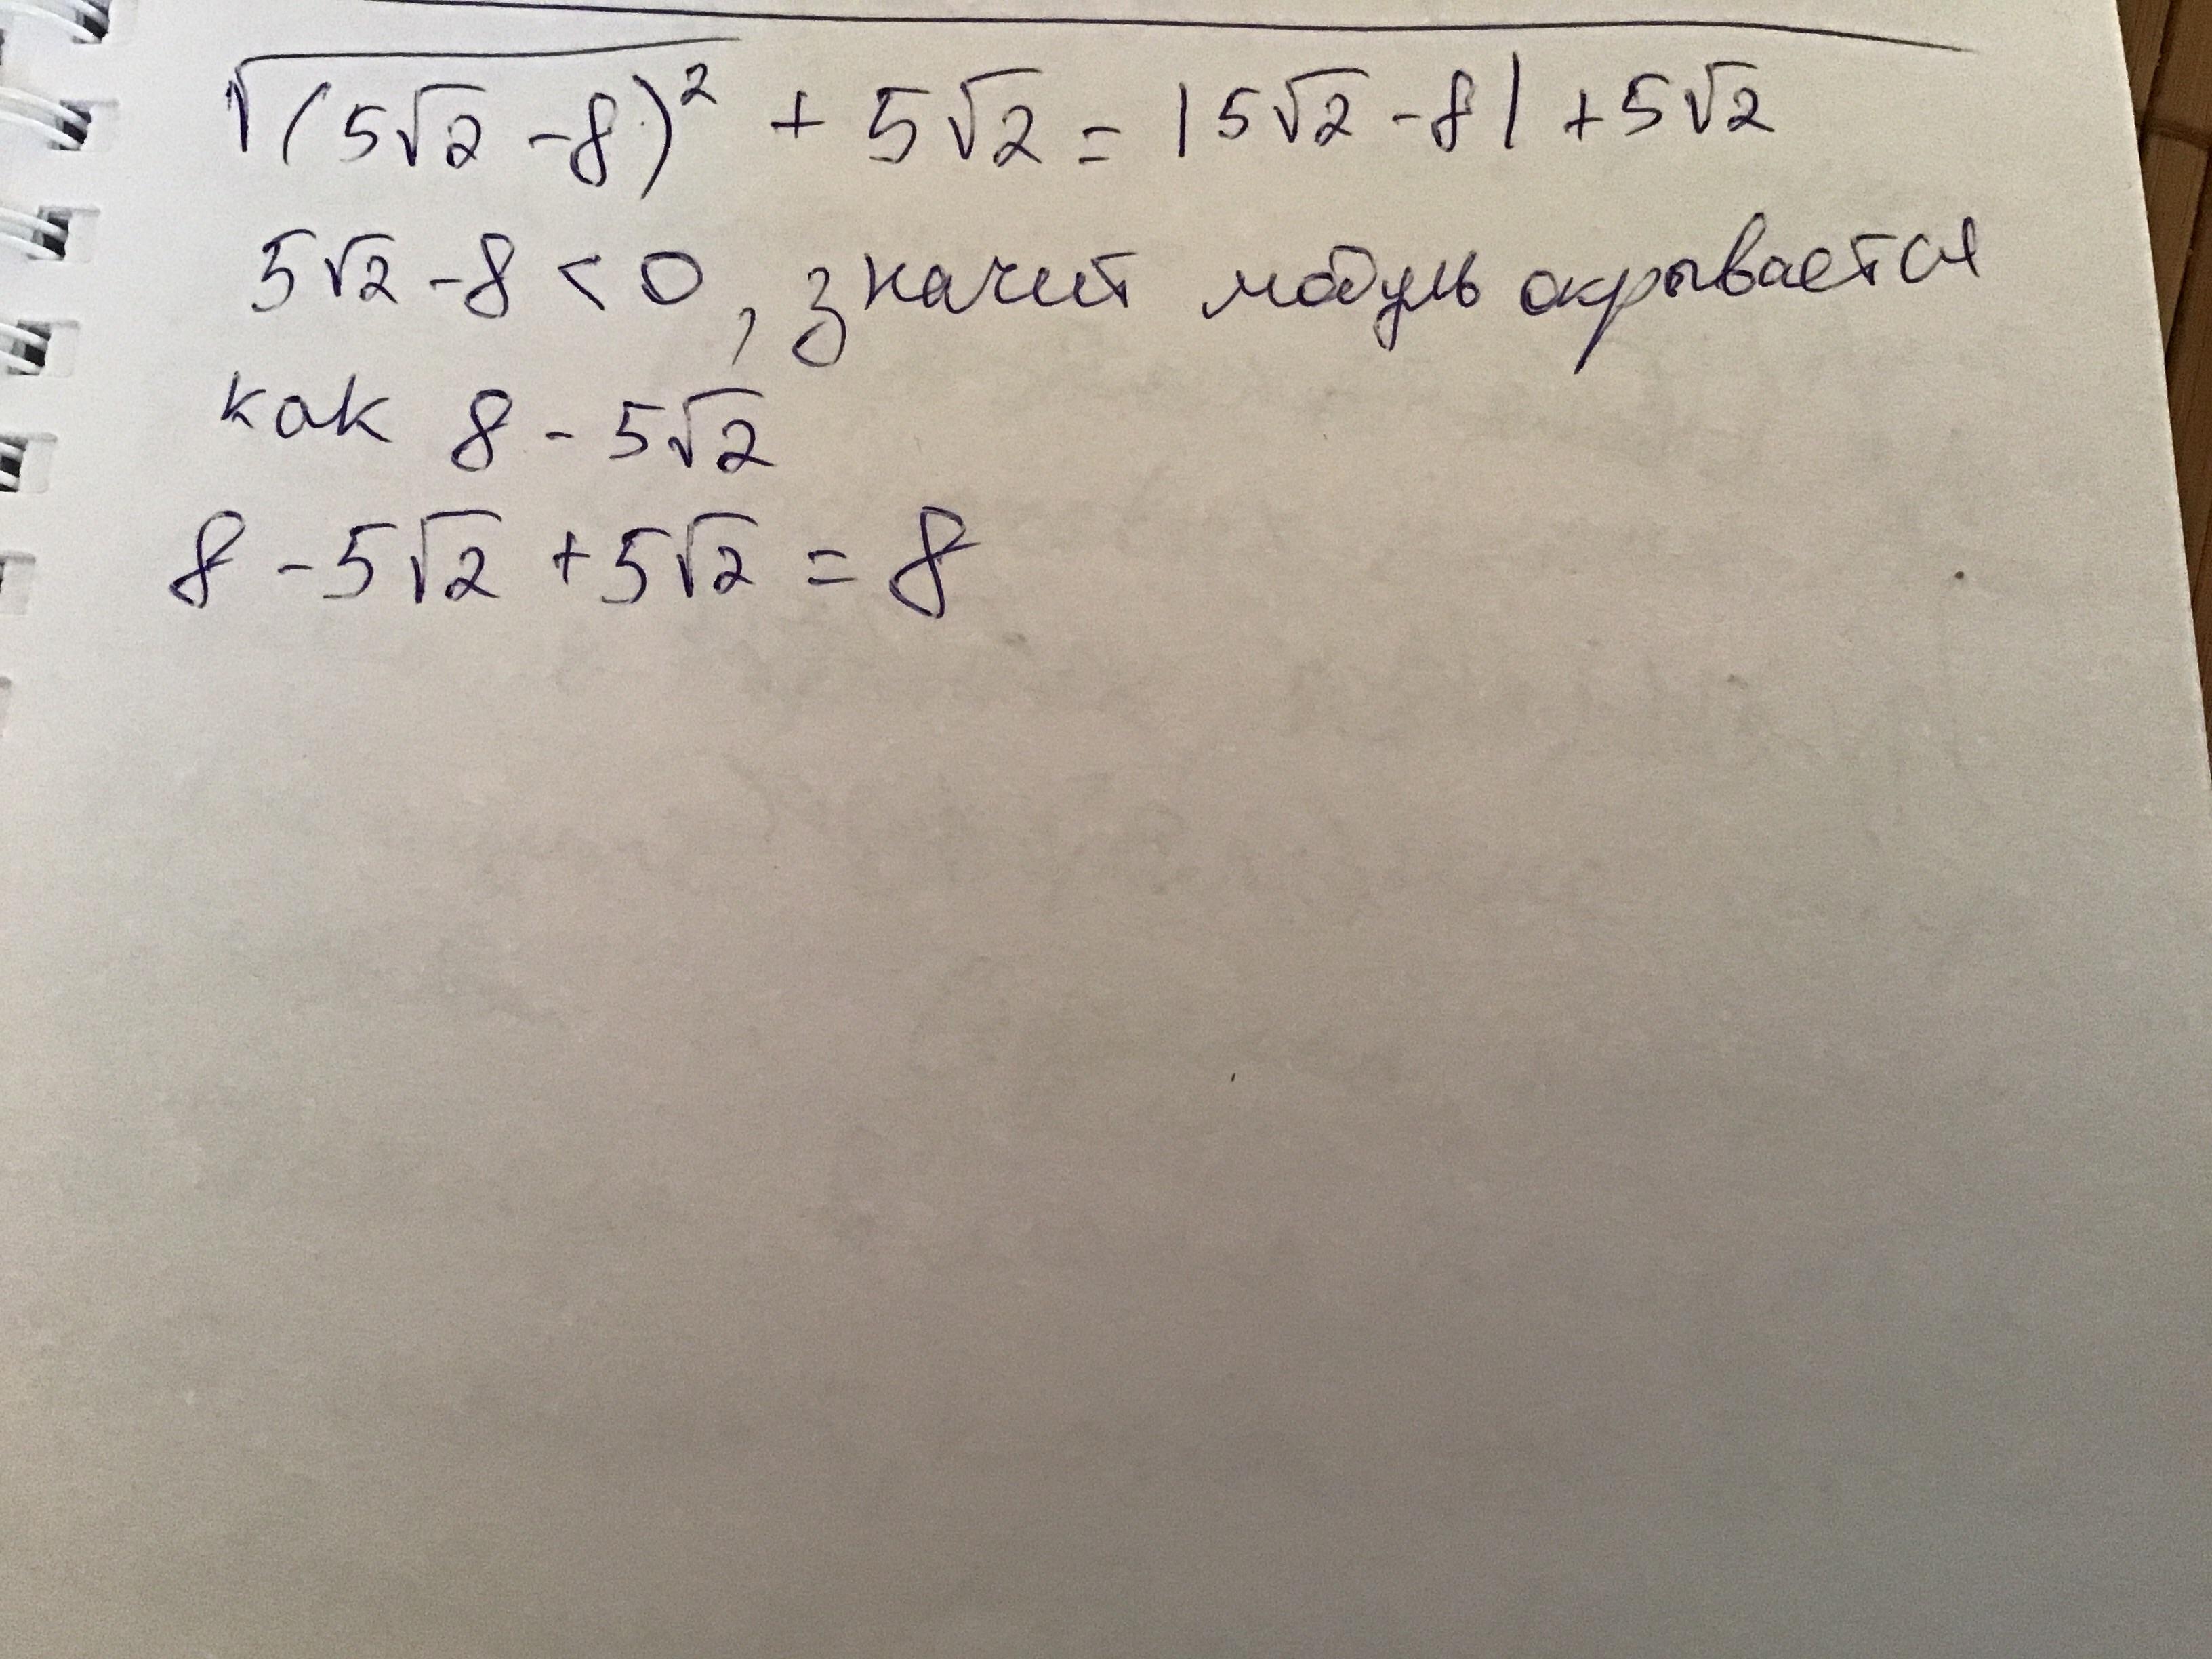 √(5√2 -8)² + 5√2 = |5√2 -8| +5√2
5√2 -8 < 0, значит модуль окрывается
как 8 - 5√2
8 - 5√2 + 5√2 = 8